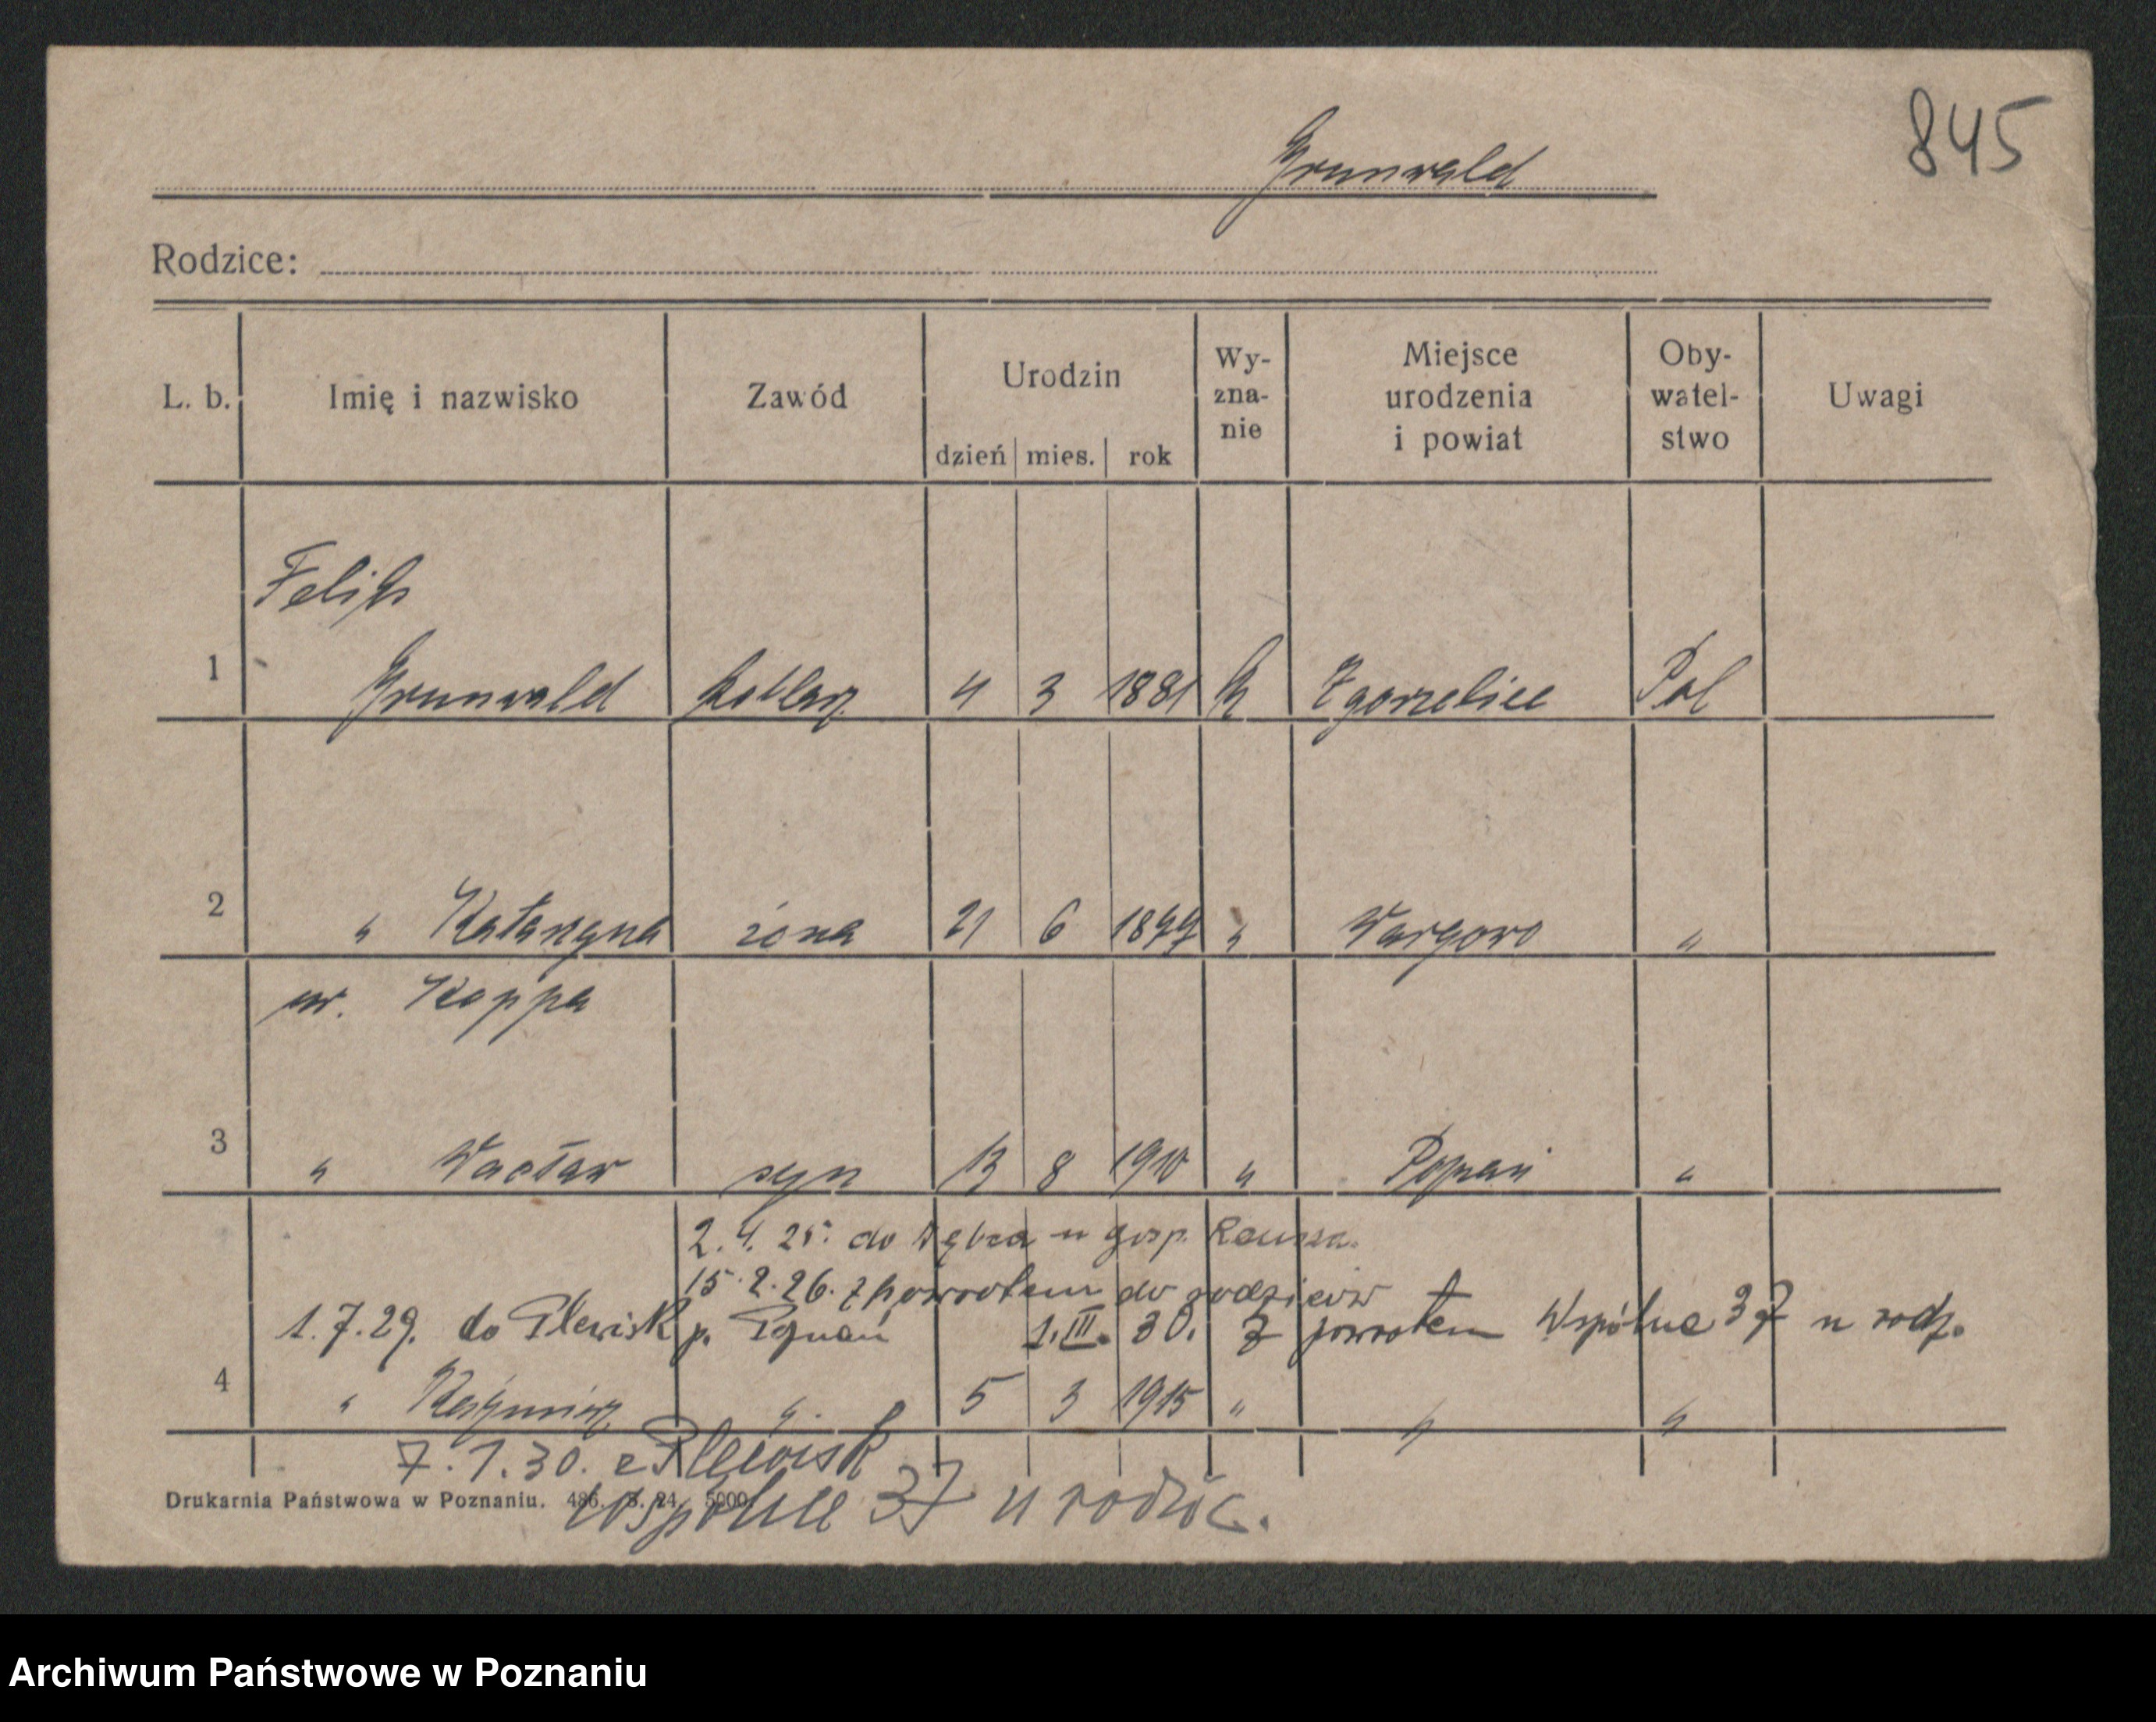 845
Grunwald
Rodzice:
L. b. Imię i nazwisko Zawód Urodzin dzień mies. rok Wy-zna-nie Miejsce urodzenia i powiat Oby-watel-stwo Uwagi
Feliks
1 Grunwald kotlarz 4 3 1881 k Zgorzelice Pol
2 " Katarzyna żona 21 6 1877 " Wargowo "
ur. Koppa
3 " Wacław syn 13 8 1910 " Poznań "
2. 4. 25. do Dębca u gosp.
15. 2. 26. z powrotem do rodziców
1. 7. 29. do Plewisk p. Poznań 1. III. 30. z powrotem Wspólna 37 u rodz.
4 " Kazimierz " 5 3 1915 " " "
7. 1. 30. z Plewisk
Drukarnia Państwowa w Poznaniu. 486. 3. 24. 5000.
Wspólna 37 u rodzic.
Archiwum Państwowe w Poznaniu